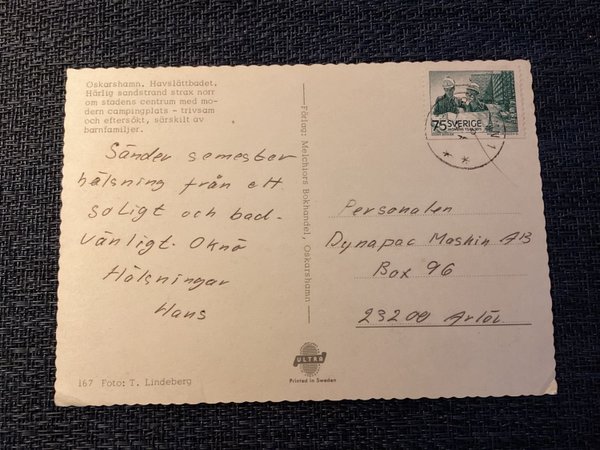 Oskarshamn. Havslättbadet.
Härlig sandstrand strax norr
om stadens centrum med mo-
dern campingplats - trivsam
och eftersökt, särskilt av
barnfamiljer.
Sänder semester
hälsning från ett
soligt och bad-
vänligt. Oknö
Hälsningar
Hans
167 Foto: T. Lindeberg
Förlag: Melchiors Bokhandel, Oskarshamn
ULTRA
Printed in Sweden
75 SVERIGE
Personalen
Dynapac Maskin AB
Box 96
23200 Arlöv